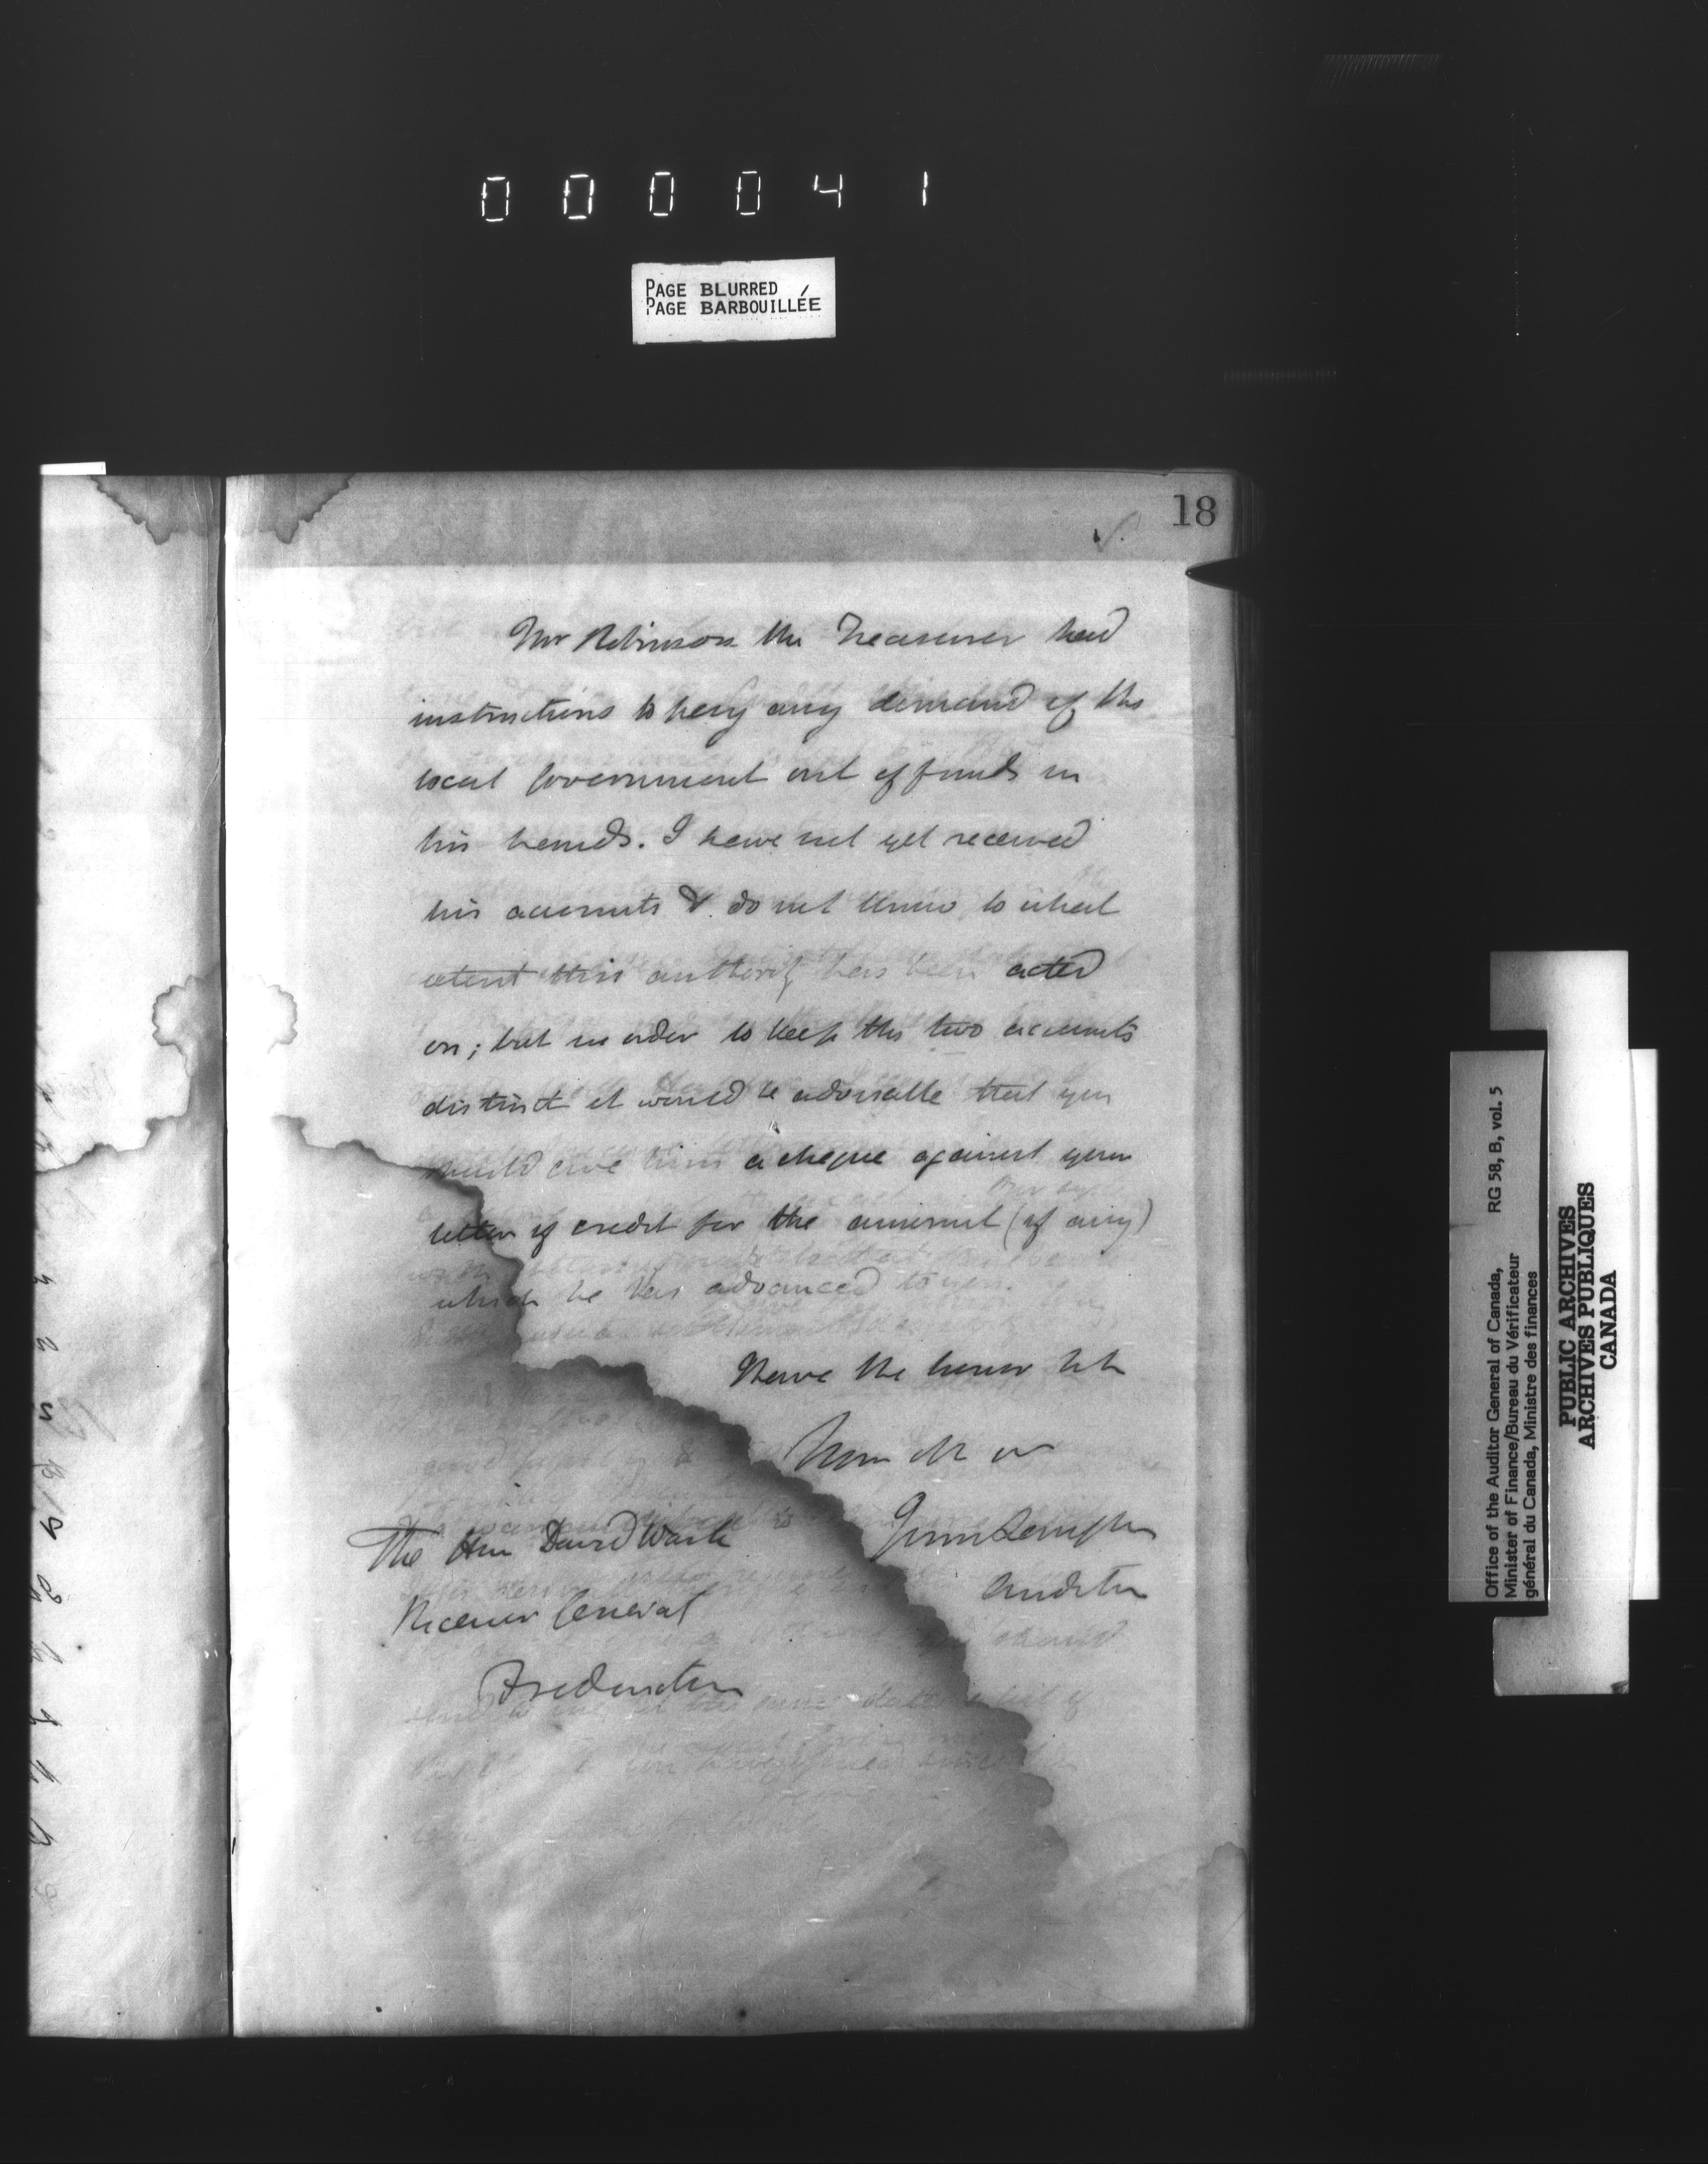 000041
PAGE BLURRED
PAGE BARBOUILLÉE
18
Mr Robinson the Treasurer had
instructions to pay any demand of the
local Government out of funds in
his hands. I have not yet received
his accounts & do not know to what
extent this authority has been acted
on; but in order to keep the two accounts
distinct it would be advisable that you
should give him a cheque against your
letter of credit for the amount (if any)
which he has advanced to you.
I have the honor to be
John Langton
Auditor
The Hon David Wark
Receiver General
Fredericton
Office of the Auditor General of Canada,
Minister of Finance/Bureau du Vérificateur
général du Canada, Ministre des finances
RG 58, B, vol. 5
PUBLIC ARCHIVES
ARCHIVES PUBLIQUES
CANADA